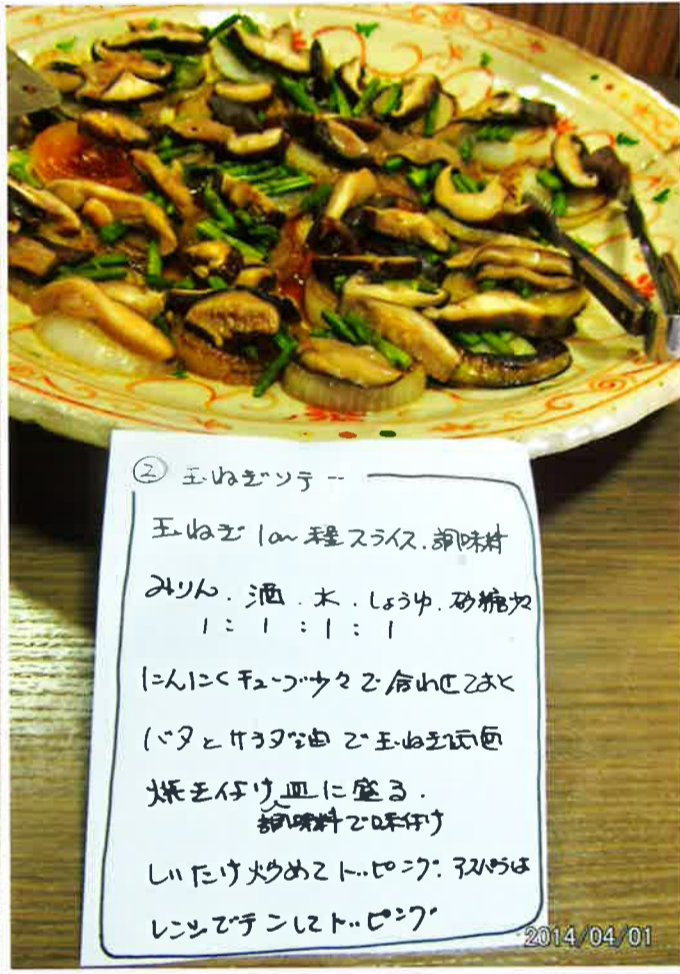 ② 玉ねぎソテー
玉ねぎ 1cm程スライス、調味料
みりん、酒、水、しょうゆ、砂糖少々
1 : 1 : 1 : 1
にんにくチューブ少々で合わせておく
バタとサラダ油で玉ねぎ両面
焼き付け皿に盛る。
調味料で味付け
しいたけ炒めてトッピング、アスパラは
レンジでチンしてトッピング
2014/04/01